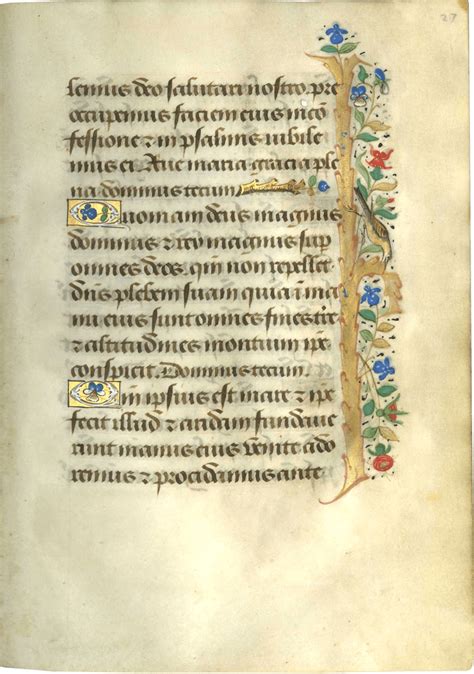 27
lemus deo salutari nostro pre
occupemus faciem eius in cō
fessione & in psalmis iubile
mus ei. Aue maria gracia ple
na dominus tecum
Quoniam deus magnus
dominus & rex magnus sup̄
omnes deos. qm̄ non repellet
dn̄s plebem suam quia ī ma
nu eius sunt omnes fines tr̄e
& altitudines montium ip̄e
conspicit. Dominus tecum.
Qm̄ ipsius est mare & ip̄e
fecit illud & aridam fundaue
runt manus eius venite ado
remus & procidamus ante